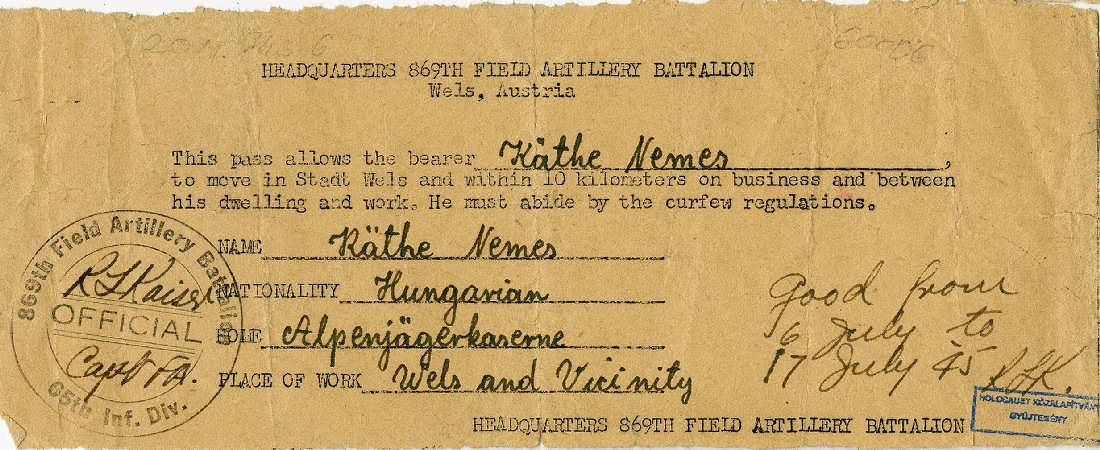 HEADQUARTERS 869TH FIELD ARTILLERY BATTALION
Wels, Austria
This pass allows the bearer Käthe Nemes,
to move in Stadt Wels and within 10 kilometers on business and between
his dwelling and work. He must abide by the curfew regulations.
NAME Käthe Nemes
NATIONALITY Hungarian
Alpenjägerkaserne
PLACE OF WORK Wels and Vicinity
869th Field Artillery Battalion
R L Kaiser
OFFICIAL
Capt FA.
65th Inf. Div.
Good from
6 July to
17 July 45 RLK.
HEADQUARTERS 869TH FIELD ARTILLERY BATTALION
HOLOCAUST KÖZALAPÍTVÁNY
GYŰJTEMÉNY